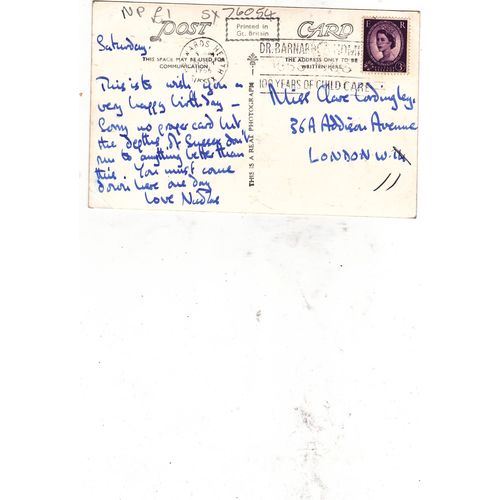 NP £1 SX76054
POST CARD
Printed in
Gt. Britain
THIS SPACE MAY BE USED FOR
COMMUNICATION
THE ADDRESS ONLY TO BE
WRITTEN HERE
Saturday.
This is to wish you a
very happy birthday –
Sorry no proper card but
the depths of Sussex don't
run to anything better than
this. You must come
down here one day
Love
THIS IS A REAL PHOTOGRAPH
WARDS HEATH
SUSSEX
DR. BARNARDO'S HOMES
100 YEARS OF CHILD CARE
E R
3D
Miss Clare Cordingley
36A Addison Avenue
LONDON W.
11